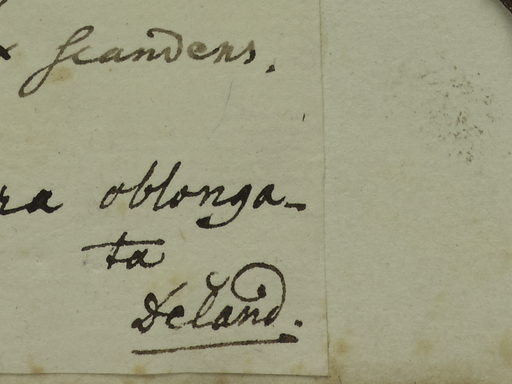 x scandens.
ra oblonga-
ta
Deland.